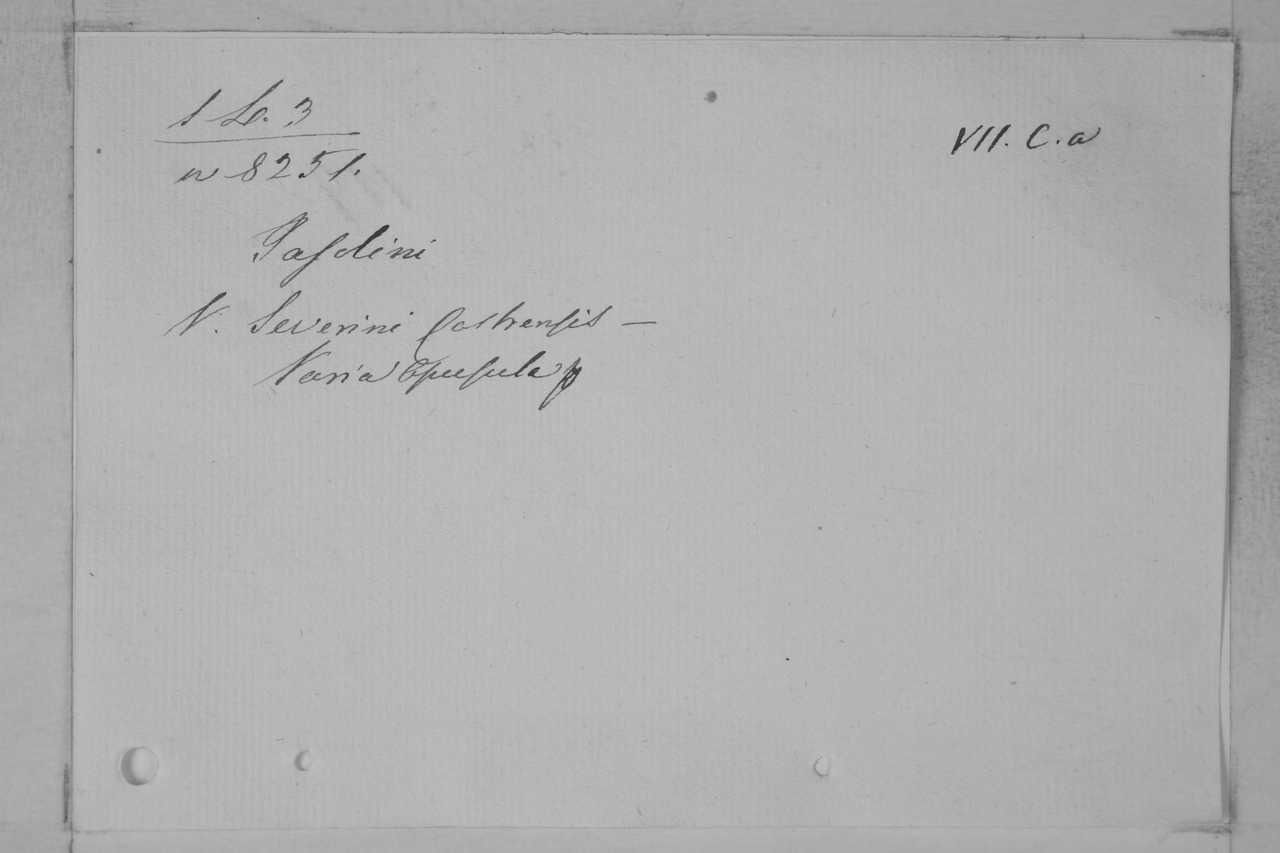 1 Le. 3
VII. C. a
n 8251.
Pasolini
N. Severini Castrensis —
Varia Opuscula